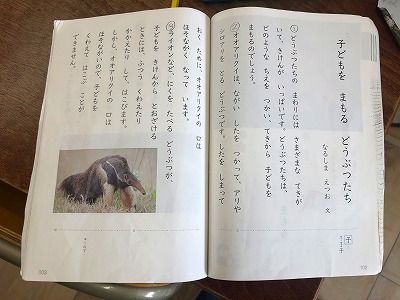 子どもを まもる どうぶつたち
なるしま えつお 文
① どうぶつたちの まわりには さまざまな てきが
いて、きけんが いっぱいです。どうぶつたちは、
どのような ちえを つかい、てきから 子どもを
まもるのでしょう。
② オオアリクイは ながい したを つかって、アリや
シロアリを とる どうぶつです。したを しまって
子
102
おく ために、オオアリクイの 口は
ほそながく なって います。
ライオンなど、にくを たべる どうぶつが、
子どもを きけんから とおざける
ときには、ふつう、くわえたり
かかえたり して、はこびます。
しかし、オオアリクイの 口は
ほそながいので、子どもを
くわえて はこぶ ことが
できません。
103